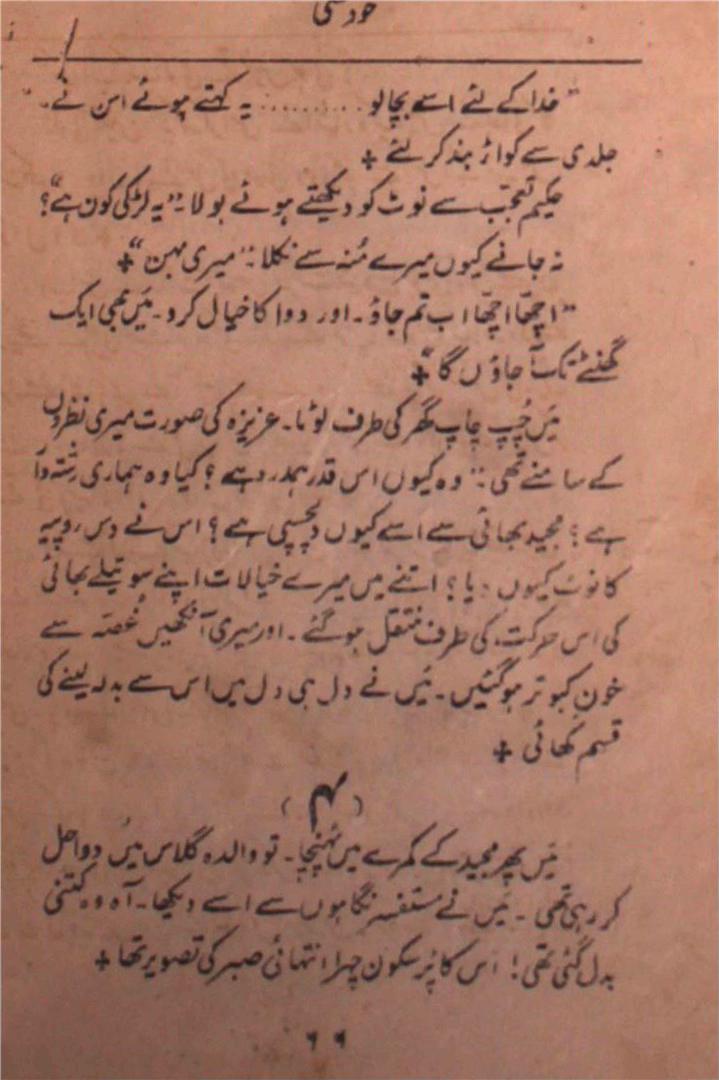 خودکشی
"خدا کے لئے اسے بچالو .......... یہ کہتے ہوئے اس نے
جلدی سے کواڑ بند کر لئے +
حکیم تعجّب سے نوٹ کو دیکھتے ہوئے بولا۔ "یہ لڑکی کون ہے"؟
نہ جانے کیوں میرے مُنہ سے نکلا۔ "میری بہن" +
"اچھّا اچھّا اب تم جاؤ۔ اور دوا کا خیال کرو۔ مَیں بھی ایک
گھنٹے تک آ جاؤں گا" +
مَیں چُپ چاپ گھر کی طرف لوٹا۔ عزیزہ کی صورت میری نظروں
کے سامنے تھی۔ "وہ کیوں اس قدر ہمدرد ہے؟ کیا وہ ہماری رشتہ دا
ہے؟ مجید بھائی سے اسے کیوں دلچسپی ہے؟ اس نے دس روپیہ
کا نوٹ کیوں دیا؟ اتنے میں میرے خیالات اپنے سوتیلے بھائی
کی اس حرکت کی طرف منتقل ہو گئے۔ اور میری آنکھیں غصّہ سے
خونِ کبوتر ہو گئیں۔ مَیں نے دل ہی دل میں اس سے بدلہ لینے کی
قسم کھائی +
(۴)
مَیں پھر مجید کے کمرے میں پہنچا۔ تو والدہ گلاس میں دوا حل
کر رہی تھی۔ مَیں نے مستفسر نگاہوں سے اسے دیکھا۔ آہ وہ کتنی
بدل گئی تھی! اس کا پُر سکون چہرا انتہائی صبر کی تصویر تھا +
۶۶